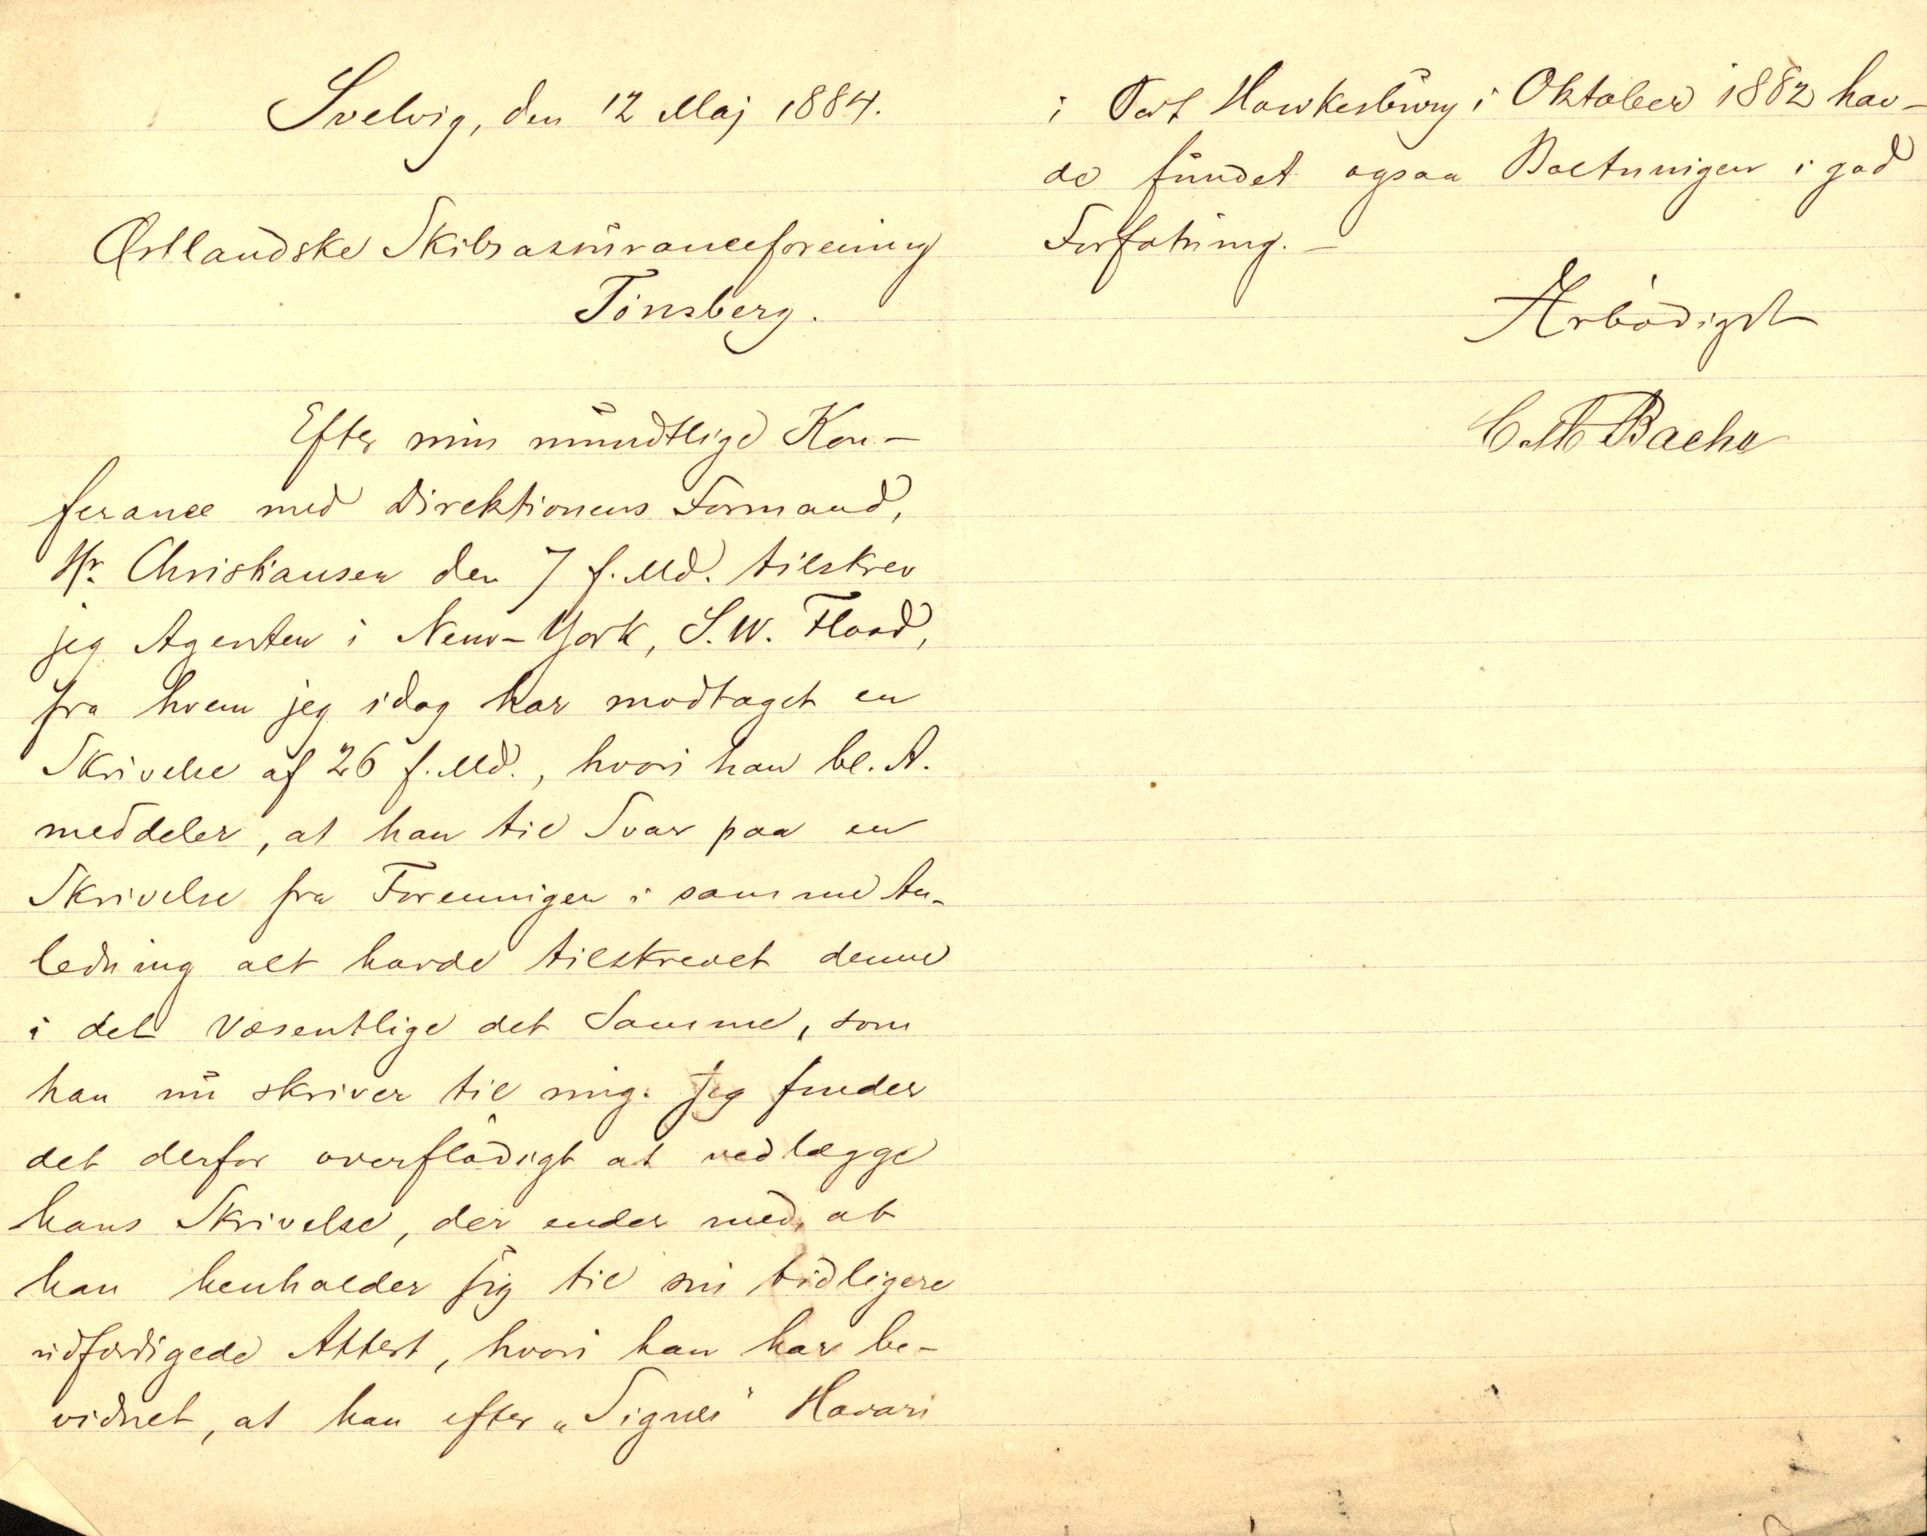 Svelvig, den 12 Maj 1884.
Østlandske Skibsassuranceforening
Tönsberg.
Efter min mundtlige Kon-
ferance med Direktionens Formand,
Hr. Christiansen den 7 f. Md. tilskrev
jeg Agenten i New-York, S. W. Flood,
fra hvem jeg idag har modtaget en
Skrivelse af 26 f. Md., hvori han bl. A.
meddeler, at han til Svar paa en
Skrivelse fra Foreningen i samme An-
ledning alt havde tilskrevet denne
i det væsentlige det Samme, som
han nu skriver til mig. Jeg finder
det derfor overflödigt at vedlægge
hans Skrivelse, der ender med, at
han henholder sig til sin tidligere
udfærdigede Attest, hvori han har be-
vidnet, at han efter „Signes" Havari
i Port Hawkesbury i Oktober 1882 hav-
de fundet ogsaa Boltningen i god
Forfatning. –
Ærbödigst